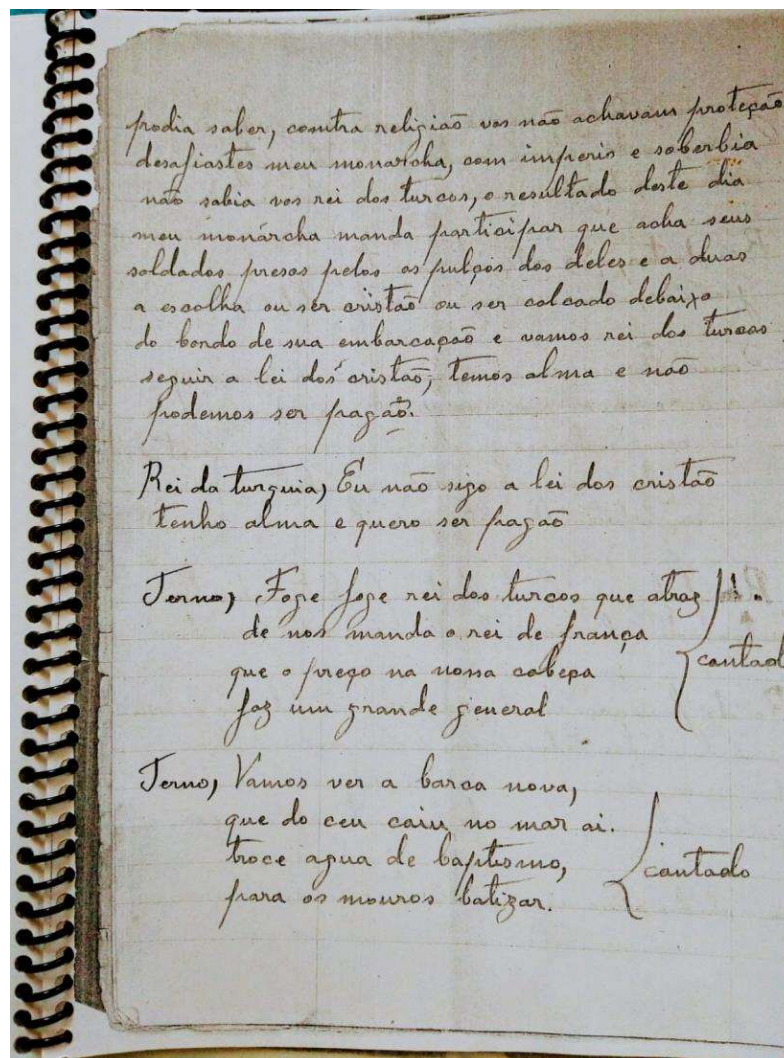 podia saber, contra religiaõ vos naõ achavam proteção
desafiastes meu monarcha, com imperio e soberbia
naõ sabia vos rei dos turcos, o resultado deste dia
meu monarcha manda participar que acha seus
soldados presos pelos os pulços dos deles e a duas
a escolha ou ser cristaõ ou ser calcado debaixo
do bordo de sua embarcaçaõ e vamos rei dos turcos
seguir a lei dos cristaõ, temos alma e naõ
podemos ser pagaõ.
Rei da turquia, Eu naõ sigo a lei dos cristaõ
tenho alma e quero ser pagaõ
Terno, Foge foge rei dos turcos que atraz
de nos manda o rei de frança
que o preço na nossa cabeça
faz um grande general
cantad
Terno, Vamos ver a barca nova,
que do ceu caiu no mar ai.
troce agua de baptismo,
para os mouros batizar.
cantado